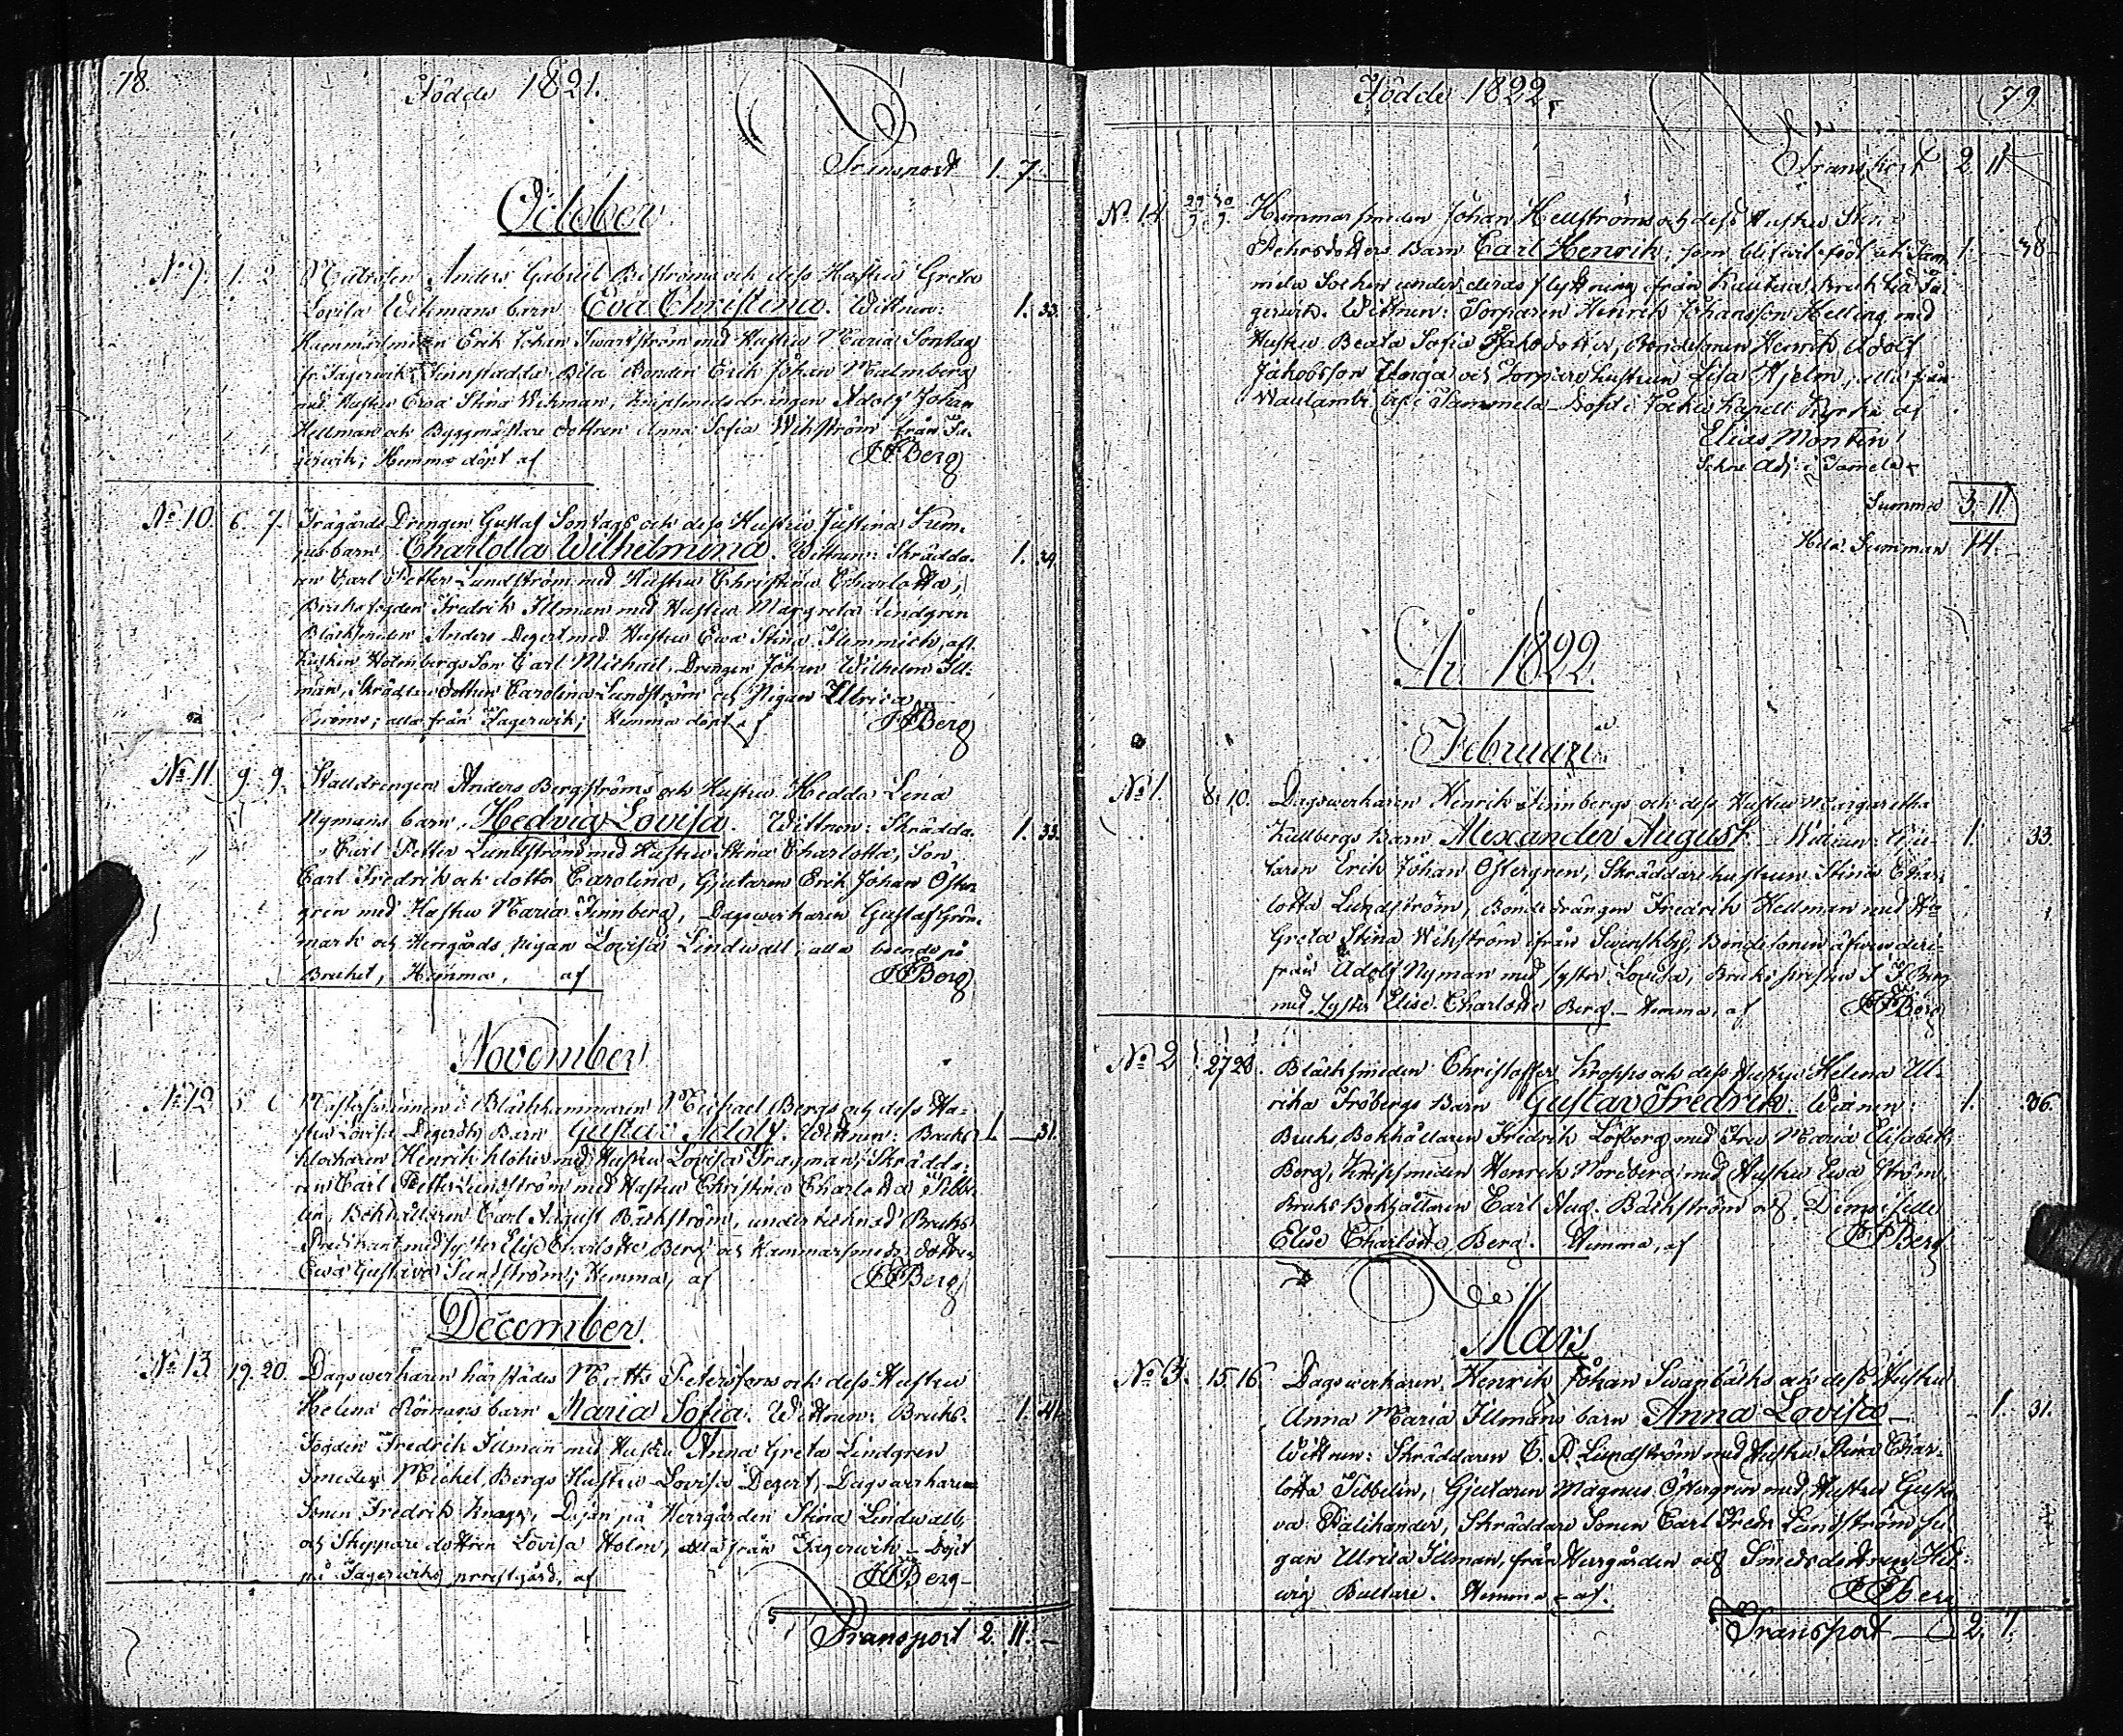 78.
Födde 1821.
Transport 1. 7.
October
No 9. 1. 2. Anders Gabriel och dess Hustru Greta
Lovisa Wikmans barn Eva Christina. Wittnen: 1. 33.
Hammarsmeden Erik Johan Swartström med Hustru Maria Sontag
fr. Fagerwik; Bonden Erik Johan Malmberg
med Hustru Ewa Stina Wikman, Knipsmedsdrängen Adolf Johan
Hellman och Byggmästare dottren Anna Sofia Wikström från Fa-
gerwik; Hemma döpt af JFBerg
No 10. 6. 7. Trägårds Drengen Gustaf Sontags och dess Hustru Justina
barn Charlotta Wilhelmina. Wittnen: Skrädda- 1. 29.
ren Carl Petter Lundström med Hustru Christina Charlotta,
Bruksfogden Fredrik Illman med Hustru Margreta Lindgren
Blacksmeden Anders Degert med Hustru Ewa Stina Flemmich, afl.
Kusken Holmbergs Son Carl Michael, Drengen Johan Wilhelm Ill-
man, Skräddare dottren Carolina Lundström och Pigan Ulrica
alla från Fagerwik; Hemma döpt af JFBerg
No 11. 9. 9. Stalldrengen Anders Bergströms och Hustru Hedda Lena
Nymans barn, Hedvig Lovisa. Wittnen: Skrädda- 1. 33.
r Carl Petter Lundström med Hustru Stina Charlotta, Son
Carl Fredrik och dotter Carolina, Gjutaren Erik Johan Öster-
gren med Hustru Maria Finnberg, Dagswerkaren Gustaf Grön-
mark och Herrgårds pigan Lovisa Lindwall; alla boende på
Bruket, Hemma, af JFBerg
November
No 12 5. 6. Mästersvennen i Blackhammaren Michael Bergs och dess Hu-
stru Lovisa Degerts Barn Gustav Adolf. Wittnen: Bruks 1. 31.
klockaren Henrik med Hustru Lovisa Tragman, Skrädda-
ren Carl Petter Lundström med Hustru Christina Charlotta Tibbe-
lin, Bokhållaren Carl August Bäckström, undertecknad Bruks
Predikant med syster Elise Charlotte Berg och Hammarsmeds dottren
Ewa Gustava Sundström; Hemma, af JFBerg
December.
No 13. 19. 20. Dagswerkaren härstädes Matts Peterssons och dess Hustru
Helena Römans barn Maria Sofia. Wittnen: Bruks- 1. 41.
Fogden Fredrik Illman med Hustru Anna Greta Lindgren
Smeden Michel Bergs Hustru Lovisa Degert, Dagswerkare
Sonen Fredrik Knapp, Dejan på Herrgården Stina Lindwall
och Skeppare dottren Lovisa Holm, alla från Fagerwik – Döpt
på Fagerwiks prestgård, af JFBerg
Transport 2. 11.
Födde 1822.
79.
Transport 2 11
No 14 Hammarsmeden Johan Hellströms och dess Hustru Stina
Pehrsdotters Barn Carl Henrik; som blifvit född uti Tam- 1. 38
mela Socken under deras flyttning ifrån Kautua Bruk til Fa-
gerwik. Wittnen: Torparen Henrik Johansson Helling med
Hustru Beata Sofia Jakobsdotter, Bondedrengen Henrik Adolf
Jakobsson och Torpare hustrun Lisa Hjelm; alla från
i Tammela – Döpt i Jockis Kapell Kyrka af
Elias Monten
Adj. i Tamela
Summa 3. 11
Hela Summan 14.
År 1822.
Februari
No 1. 8. 10. Dagswerkaren Henrik Finnbergs och dess Hustru Margaretha
Kullbergs Barn Alexander August. Wittnen: Gju- 1. 33.
taren Erik Johan Östergren, Skräddarehustrun Stina Char-
lotta Lundström, Bondedrängen Fredrik Hellman med Hu
Greta Stina Wikström ifrån Svenskby, Bondesonen äfven deri-
från Adolf Nyman med syster Lovisa, Bruks prest J. F. Berg
med syster Elise Charlotte Berg – Hemma, af JFBerg
No 2 27 28. Blacksmeden Christoffer Kropps och dess Hustru Helena Ul-
rika Fröbergs Barn Gustav Fredrik. Wittnen: 1. 36.
Bruks Bokhållaren Fredrik Löfberg med Fru Maria Elisabeth
Berg, Knipsmeden Henrik Nordberg med Hustru Ewa Ström,
Bruks Bokhållaren Carl Aug. Bäckström och Demoiselle
Elise Charlotte Berg. Hemma, af JFBerg
Mars
No 3. 15 16. Dagswerkaren Henrik Johan Swanbäcks och dess Hustru
Anna Maria Illmans barn Anna Lovisa – 1. 31.
Wittnen: Skräddaren C. P. Lundström med Hustru Stina Char-
lotta Tibbelin, Gjutaren Magnus Östergren med Hustru Gusta-
va Palikander, Skräddare Sonen Carl Fredr Lundström, Pi-
gan Ulrica Illman, från Herrgården och Smedsdottren Hed-
wig Bultare. Hemma – af. JFBerg
Transport 2. 7.